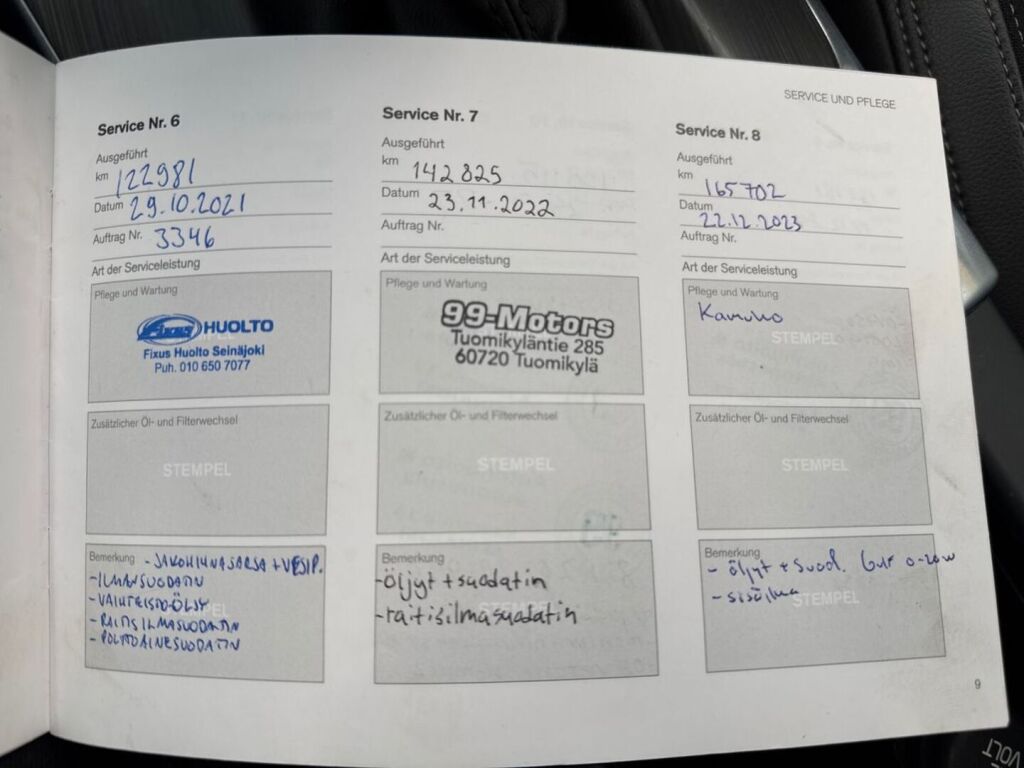 SERVICE UND PFLEGE
Service Nr. 6
Ausgeführt
km 122981
Datum 29.10.2021
Auftrag Nr. 3346
Art der Serviceleistung
Pflege und Wartung
Fixus HUOLTO
Fixus Huolto Seinäjoki
Puh. 010 650 7077
Zusätzlicher Öl- und Filterwechsel
STEMPEL
Bemerkung - JAKOHIHNASARJA + VESIP.
- ILMANSUODATIN
- VAIHTEISTOÖLJY
- RAITISILMASUODATIN
- POLTTOAINESUODATIN
Service Nr. 7
Ausgeführt
km 142 825
Datum 23.11.2022
Auftrag Nr.
Art der Serviceleistung
Pflege und Wartung
99-Motors
Tuomikyläntie 285
60720 Tuomikylä
Zusätzlicher Öl- und Filterwechsel
STEMPEL
Bemerkung
-öljyt + suodatin
-raitisilmasuodatin
Service Nr. 8
Ausgeführt
km 165702
Datum 22.12.2023
Auftrag Nr.
Art der Serviceleistung
Pflege und Wartung
STEMPEL
Zusätzlicher Öl- und Filterwechsel
STEMPEL
Bemerkung
- öljyt + suod. 0-20W
- sisäilma
STEMPEL
9
VOLT